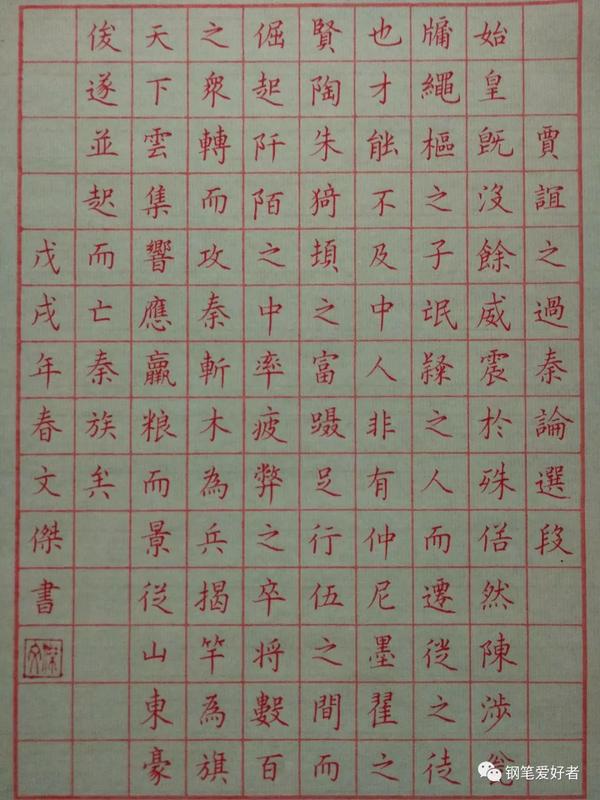 賈誼之過秦論選段
始皇旣沒餘威震於殊俗然陳涉瓮
牖繩樞之子氓隸之人而遷徙之徒
也才能不及中人非有仲尼墨翟之
賢陶朱猗頓之富躡足行伍之間而
倔起阡陌之中率疲弊之卒将數百
之衆轉而攻秦斬木為兵揭竿為旗
天下雲集響應贏粮而景從山東豪
俊遂並起而亡秦族矣
戊戌年春文傑書
钢笔爱好者